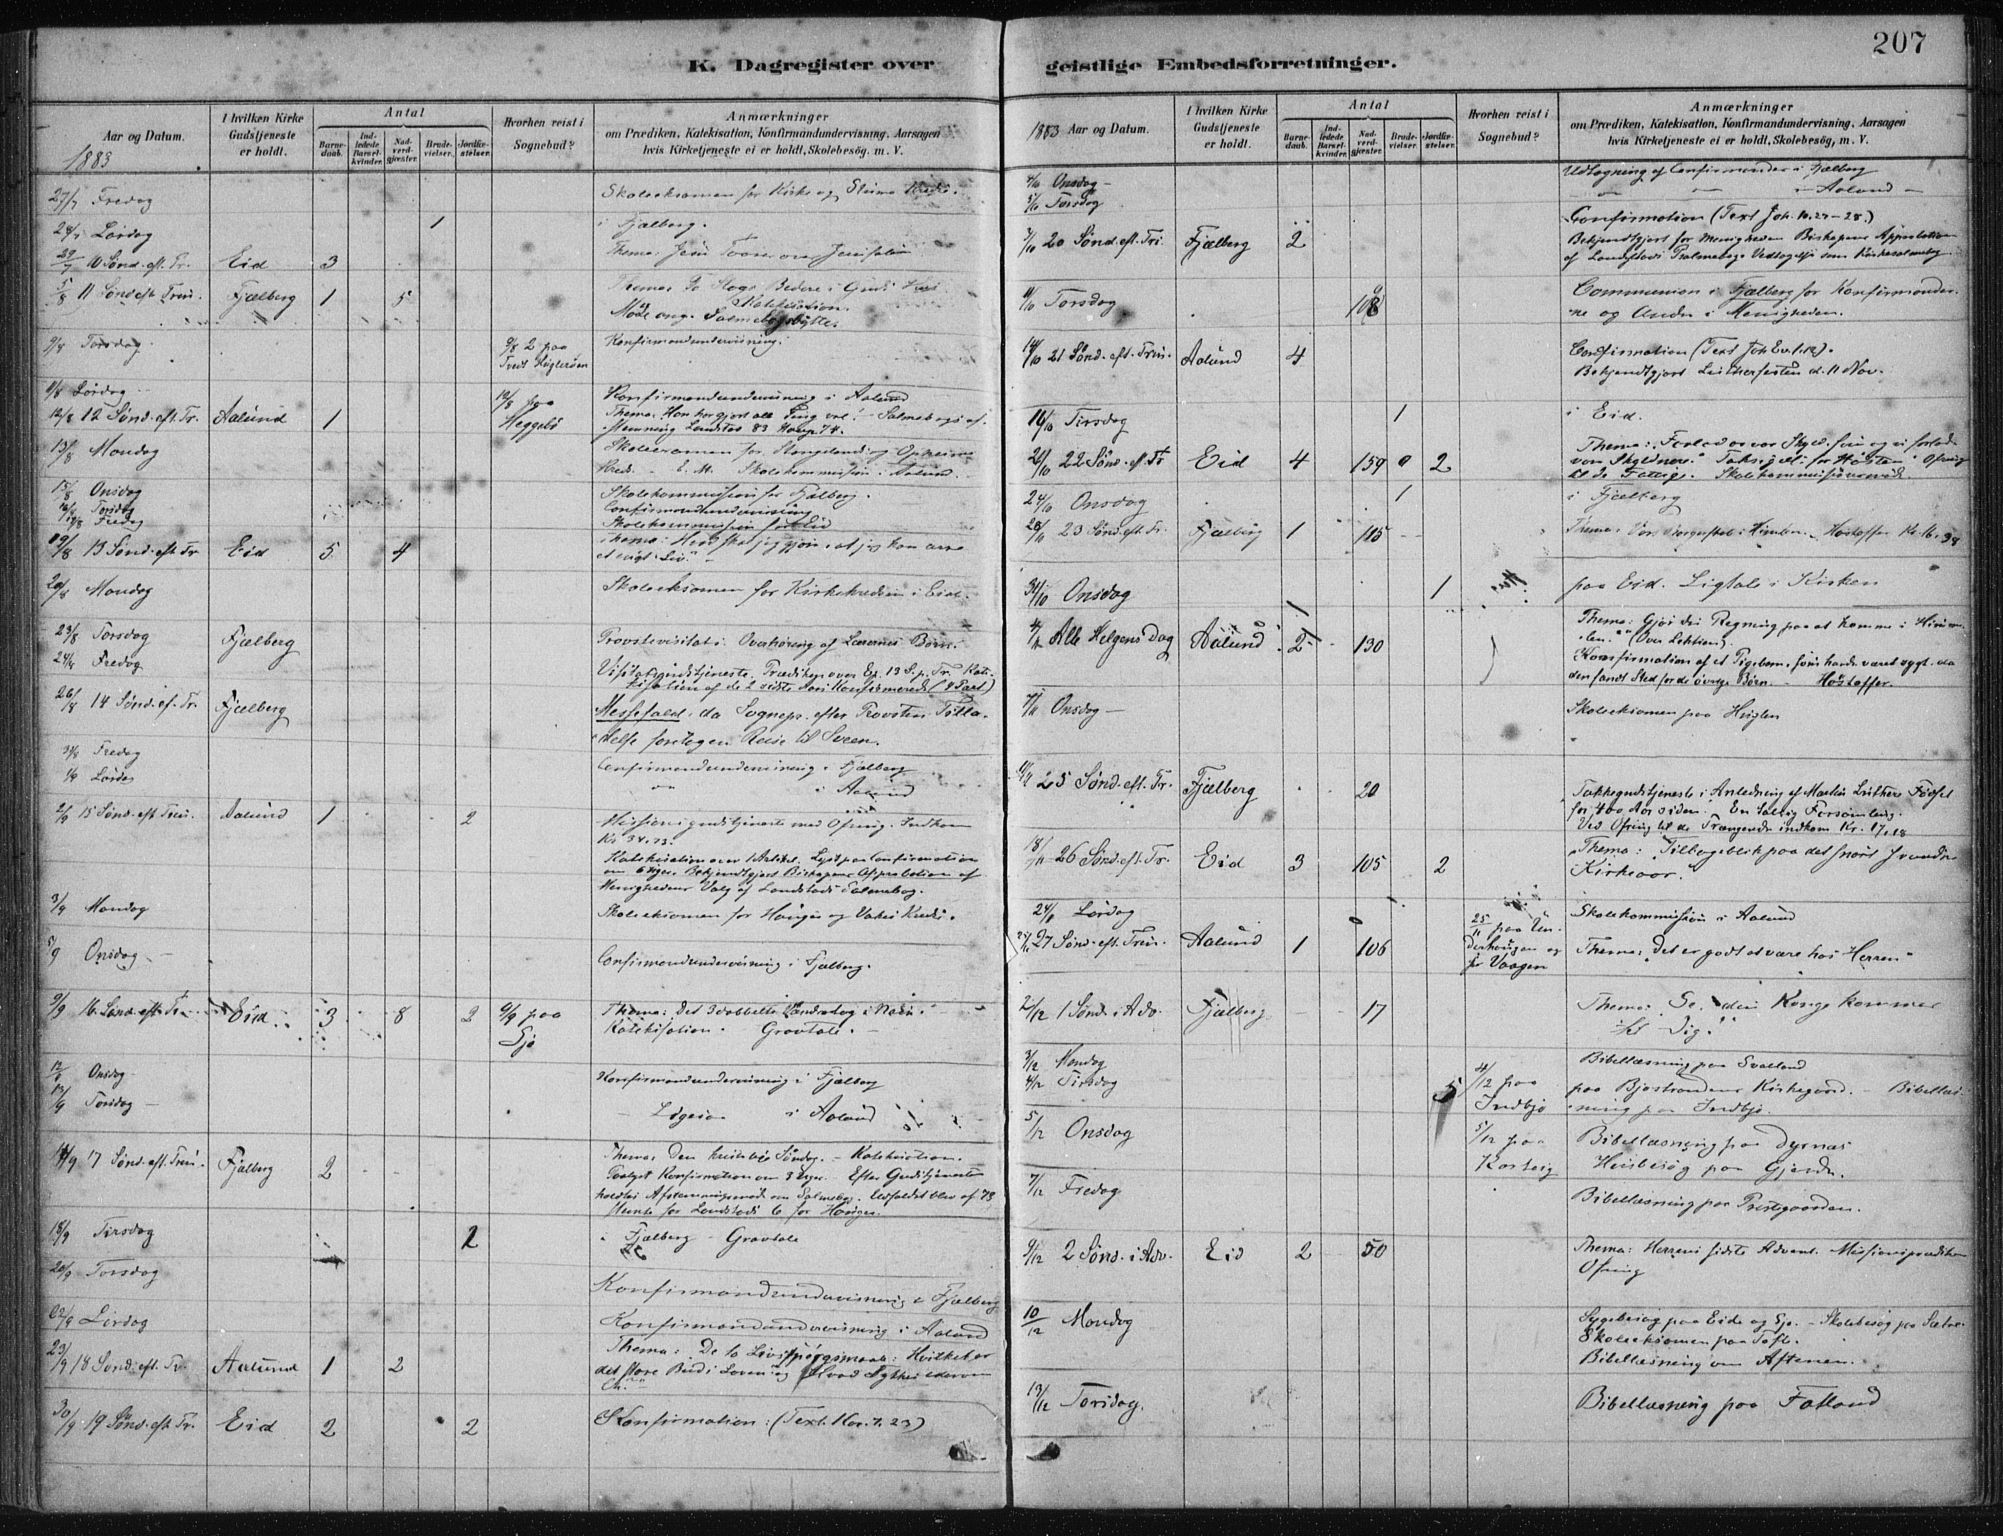 207
K. Dagregister over geistlige Embedsforretninger.
Aar og Datum. I hvilken Kirke Gudstjeneste er holdt. Antal Barnedaab. Indledede Barselkvinder. Nadverdgjester. Brudevielser. Jordfæstelser. Hvorhen reist i Sognebud? Anmærkninger om Prædiken, Katekisation, Konfirmandundervisning, Aarsagen hvis Kirketjeneste ei er holdt, Skolebesög, m. V.
1883
27/7 Fredag Skoleeksamen for Kirke og Kreds.
28/7 Lördag 1 i Fjælberg.
29/7 10 Sönd. eft. Tr. Eid 3 Thema: Jesu Taarer over Jerusalem
5/8 11 Sönd. eft. Trin. Fjælberg 1 5 Thema: To Slags Bedere i Guds Hus
Katekisation.
Möde ang. Salmebogsbytte.
9/8 Torsdag 9/8 2 paa Konfirmandundervisning.
Tvedt
11/8 Lördag Konfirmandundervisning i Aalund
12/8 12 Sönd. eft. Tr. Aalund 1 12/8 paa Heggebö Thema: Han har gjort alle Ting vel! Salmebogsafstemning Landstad 83 Hauge 74.
13/8 Mandag
Kreds. E. M. Skolekommission i Aalund.
15/8 Onsdag Skolekommission for Fjælberg.
16/8 Torsdag Confirmandundervisning
17/8 Fredag Skolekommission for Eid
19/8 13 Sönd. eft. Tr. Eid 5 4 Thema: Hvad skal jeg gjöre, at jeg kan arve et evigt Liv
20/8 Mandag Skoleeksamen for Kirkekredsen i Eid.
23/8 Torsdag Fjælberg Provstevisitats. Overhöring af Lærernes Börn.
24/8 Fredag
Visitatsgudstjeneste. Prædiken over Ep. 13 S. p. Tr. Katekisation af de 2 sidste Aars Konfirmerede
26/8 14 Sönd. eft. Tr. Fjælberg Messefald, da Sognepr. efter Provstens Tilladelse foretagen Reise til Sveen.
31/8 Fredag Confirmandundervisning i Fjælberg
1/9 Lördag i Aalund
2/9 15 Sönd. eft. Trin. Aalund 1 2 Missionsgudstjeneste med Ofring. Indkom
Kr. 34.73.
Katekisation over 1 Artikel. Lyst paa Confirmation
om 6 Uger. Bekjendtgjort Biskopens Approbation af
Menighedens Valg af Landstads Salmebog.
3/9 Mandag Skoleeksamen for Hauges og Kreds.
5/9 Onsdag Confirmandundervisning i Fjælberg.
9/9 16 Sönd. eft. Tr. Eid. 3 8 2 9/9 paa Sjo Thema: Det i Nain.
Katekisation. Gravtale.
12/9 Onsdag Konfirmandundervisning i Fjælberg
13/9 Torsdag Ligesaa i Aalund
16/9 17 Sönd. eft. Trin. Fjælberg 2 Thema: Den kristelige Söndag. Katekisation.
Konfirmation om 3 Uger. Efter Gudstjeneste
holdtes Afstemningsmöde om Salmebog. Udfaldet blev af 78
Stemte for Landstads 6 for Hauges.
18/9 Tirsdag 2 i Fjælberg Gravtale
20/9 Torsdag Konfirmandundervisning i Fjælberg
22/9 Lördag Konfirmandundervisning i Aalund
23/9 18 Sönd. eft. Tr. Aalund 1 2 Thema: De to Livsspörgsmaal: Hvilket er
det store Bud i Loven og Hvad tykkes eder om
Ch.
30/9 19 Sönd. eft. Tr. Eid 2 2 Konfirmation: (Text. 1 Kor. 7. 23)
1883 Aar og Datum. I hvilken Kirke Gudstjeneste er holdt. Antal Barnedaab. Indledede Barselkvinder. Nadverdgjester. Brudevielser. Jordfæstelser. Hvorhen reist i Sognebud? Anmærkninger om Prædiken, Katekisation, Konfirmandundervisning, Aarsagen hvis Kirketjeneste ei er holdt, Skolebesög, m. V.
4/10 Onsdag Udtagning af Confirmander i Fjælberg
5/10 Torsdag i Aalund
7/10 20 Sönd. eft. Tri. Fjælberg 2 Confirmation (Text Joh. 10. 27-28.)
Bekjendtgjort for Menigheden Biskopens Approbation
af Landstads Salmebogs Vedtagelse som Kirkesalmebog
11/10 Torsdag 108 Communion i Fjælberg for Konfirmanderne og Andre i Menigheden.
14/10 21 Sönd. eft. Trin. Aalund 4 Confirmation (Text Joh. Ev. 1.12).
Bekjendtgjort Lutherfesten d. 11 Nov.
16/10 Tirsdag 1 i Eid.
21/10 22 Sönd. ef. Tr Eid 4 159 2 Thema: Forlad os vor Skyld, som og vi forlade
vore Skyldnere. Taksigelse for Hösten. Ofring
til de Fattige. Skolekommissionsmöde.
24/10 Onsdag 1 i Fjælberg
28/10 23 Sönd. eft. Tr. Fjælberg 1 115 Thema: Vor Borgerskab i Himlen. Höstoffer Kr. 16.98
31/10 Onsdag 1 paa Eid. Ligtale i Kirken
4/11 Alle Helgens Dag Aalund 2 130 Thema: Gjör dri Regning paa at komme i Himmelen. Over Lektien.
Konfirmation af et Pigebarn, som havde været sygt, da
den fandt Sted for de övrige Börn. Höstoffer.
7/11 Onsdag Skoleeksamen paa
11/11 25 Sönd. eft. Tr. Fjælberg 20 Takkegudstjeneste i Anledning af Martin Luthers Födsel
for 400 Aar siden. En talrig Forsamling.
Ved Ofring til de Trængende indkom Kr. 17,18
18/11 26 Sönd. eft. Tr. Eid 3 105 2 Thema: Tilbageblik paa det snart svundne
Kirkeaar.
24/11 Lördag Skolekommission i Aalund
25/11 27 Sönd. eft. Trin. Aalund 1 106 25/11 paa Underhougen og Vaagen Thema: Det er godt at være hos Herren
2/12 1 Sönd. i Adv. Fjælberg 17 Thema: Se, din Konge kommer
til Dig.
3/12 Mandag Bibellæsning paa Svalland
4/12 Tirsdag 5 4/12 paa Indbjo paa Bjostrandens Kirkegaard. Bibellæsning paa Indbjo.
5/12 Onsdag 5/12 paa Bibellæsning paa Dyrnæs
Husbesög paa Gjerde.
7/12 Fredag Bibellæsning paa Prestegaarden.
9/12 2 Sönd. i Adv. Eid 2 50 Thema: Herrens sidste Advent. Missionsprædiken
Ofring
10/12 Mandag Sygebesög paa Eide og Sjo. Skolebesög paa Sætre.
Skoleeksamen paa Tofte.
Bibellæsning om Aftenen.
13/12 Torsdag. Bibellæsning paa Fatland